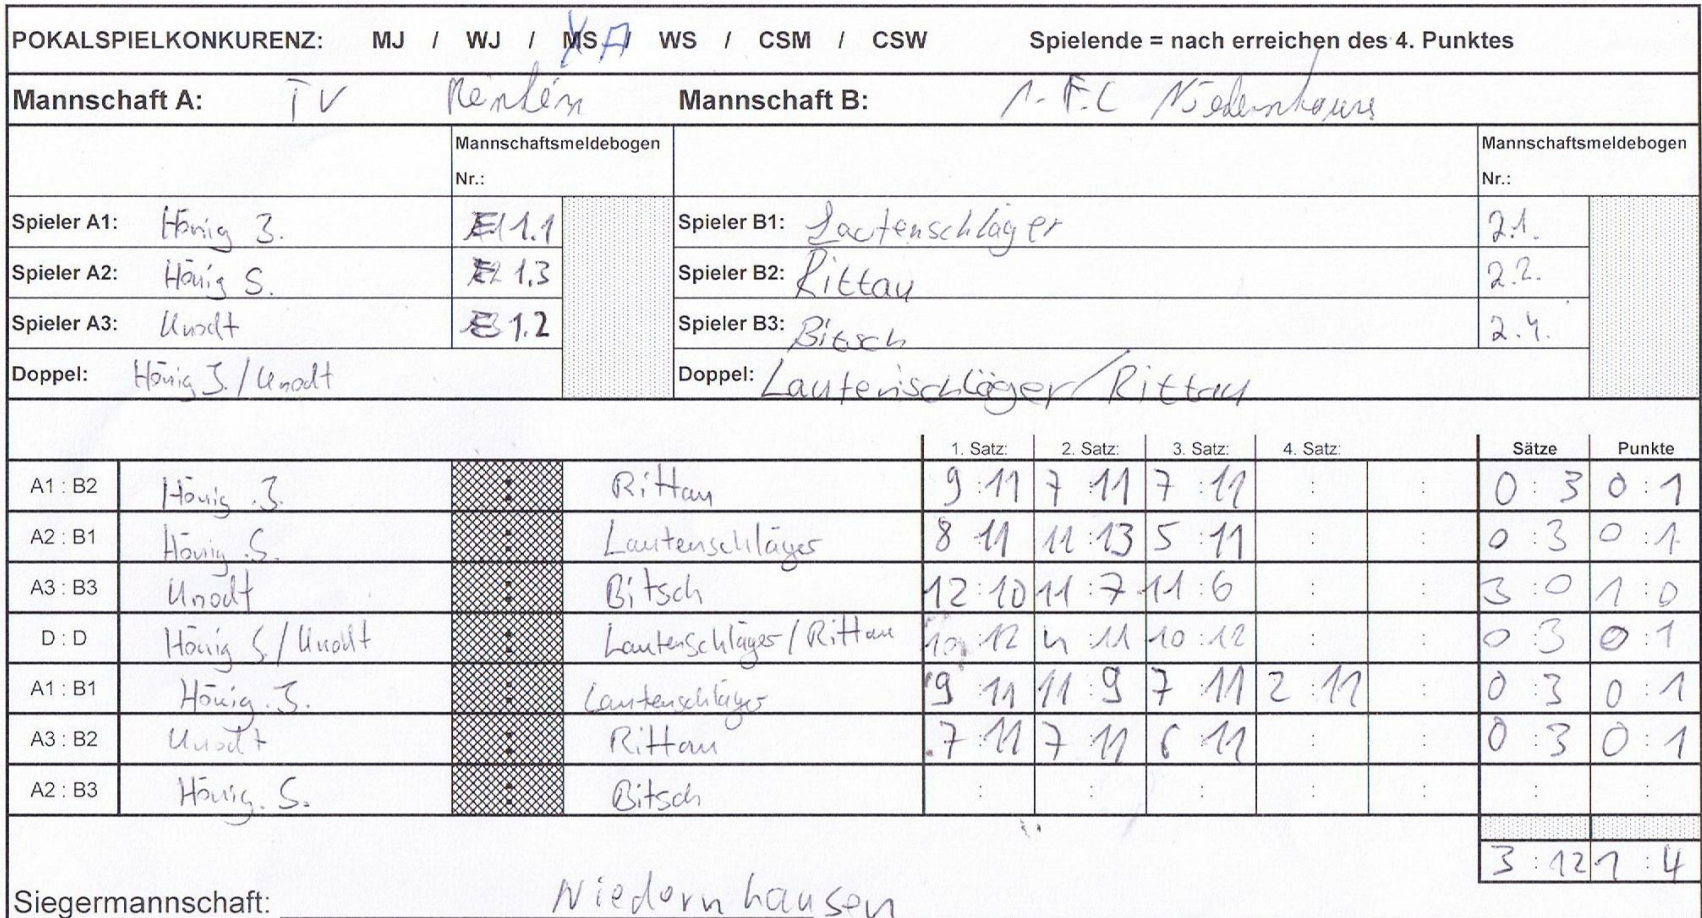 POKALSPIELKONKURENZ: MJ / WJ / MS A / WS / CSM / CSW Spielende = nach erreichen des 4. Punktes
Mannschaft A: TV Mannschaft B: 1. F.C Niedernhausen
Mannschaftsmeldebogen Nr.: Mannschaftsmeldebogen Nr.:
Spieler A1: Hönig J. 1.1 Spieler B1: Lautenschläger 2.1.
Spieler A2: Hönig S. 1.3 Spieler B2: Rittau 2.2.
Spieler A3: Knodt 1.2 Spieler B3: Bitsch 2.4.
Doppel: Hönig J. / Knodt Doppel: Lautenschläger / Rittau
1. Satz: 2. Satz: 3. Satz: 4. Satz: Sätze Punkte
A1 : B2 Hönig J. : Rittau 9 : 11 7 : 11 7 : 11 : : 0 : 3 0 : 1
A2 : B1 Hönig S. : Lautenschläger 8 11 11 : 13 5 : 11 : : 0 : 3 0 : 1
A3 : B3 Knodt : Bitsch 12 : 10 11 : 7 11 : 6 : : 3 : 0 1 : 0
D : D Hönig S. / Knodt : Lautenschläger / Rittau 10 : 12 4 : 11 10 : 12 : : 0 : 3 0 : 1
A1 : B1 Hönig J. : Lautenschläger 9 11 11 : 9 7 : 11 2 : 11 : 0 : 3 0 : 1
A3 : B2 Knodt : Rittau 7 : 11 7 : 11 6 : 11 : : 0 : 3 0 : 1
A2 : B3 Hönig. S. : Bitsch : : : : : : :
3 : 12 1 : 4
Siegermannschaft: Niedernhausen